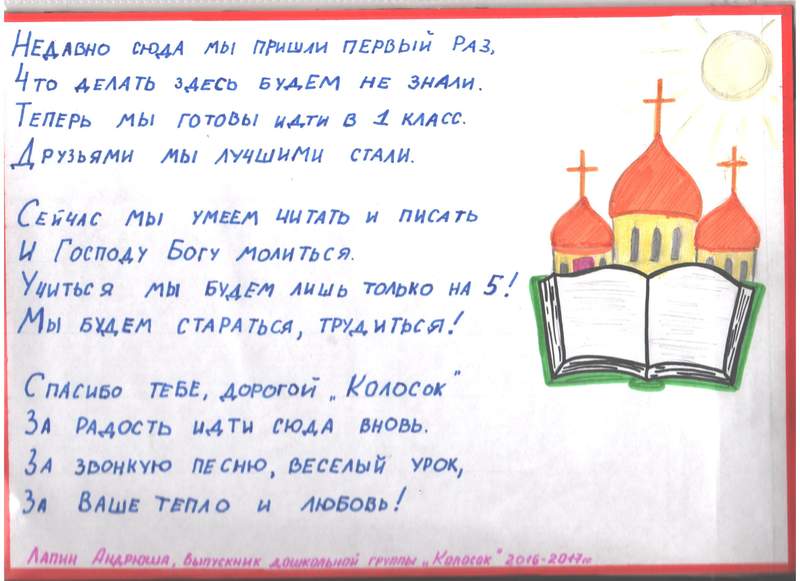 Недавно сюда мы пришли первый раз,
Что делать здесь будем не знали.
Теперь мы готовы идти в 1 класс.
Друзьями мы лучшими стали.
Сейчас мы умеем читать и писать
И Господу Богу молиться.
Учиться мы будем лишь только на 5!
Мы будем стараться, трудиться!
Спасибо тебе, дорогой „Колосок"
За радость идти сюда вновь.
За звонкую песню, веселый урок,
За Ваше тепло и любовь!
Лапин Андрюша, выпускник дошкольной группы „Колосок" 2016-2017гг